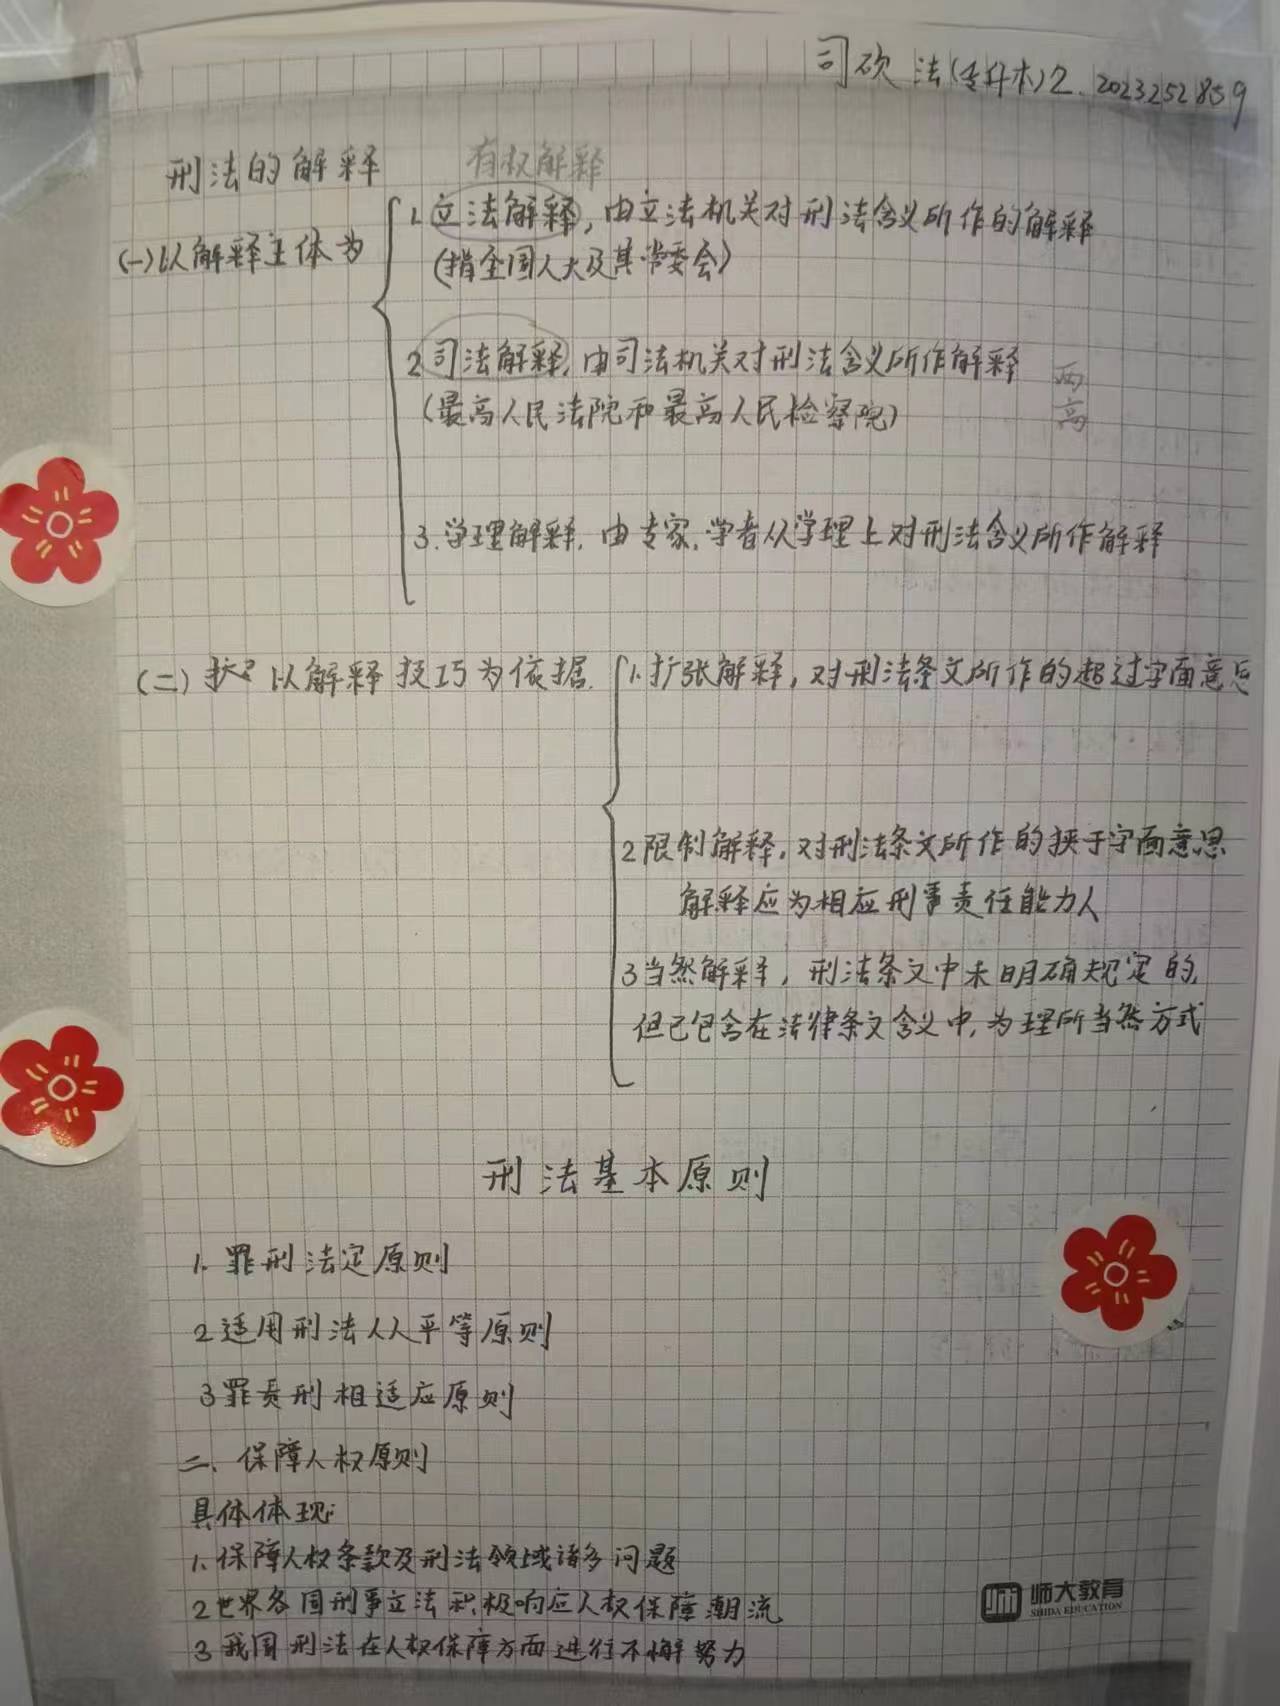 司硕 法(专升本)2. 2023252859
刑法的解释 有权解释
(一)以解释主体为
1.立法解释，由立法机关对刑法含义所作的解释
(指全国人大及其常委会)
2司法解释，由司法机关对刑法含义所作解释 两高
(最高人民法院和最高人民检察院)
3.学理解释，由专家，学者从学理上对刑法含义所作解释
(二)以解释技巧为依据
1.扩张解释，对刑法条文所作的超过字面意思
2限制解释，对刑法条文所作的狭于字面意思
解释应为相应刑事责任能力人
3当然解释，刑法条文中未明确规定的
但已包含在法律条文含义中，为理所当然方式
刑法基本原则
1.罪刑法定原则
2适用刑法人人平等原则
3罪责刑相适应原则
二、保障人权原则
具体体现:
1.保障人权条款及刑法领域诸多问题
2世界各国刑事立法积极响应人权保障潮流
3我国刑法在人权保障方面进行不懈努力
师大教育
SHIDA EDUCATION